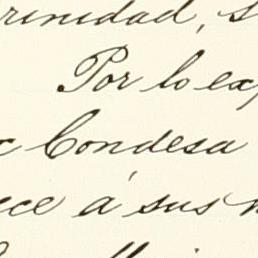 rinidad, s
Por lo ex
c Condesa
ece á sus